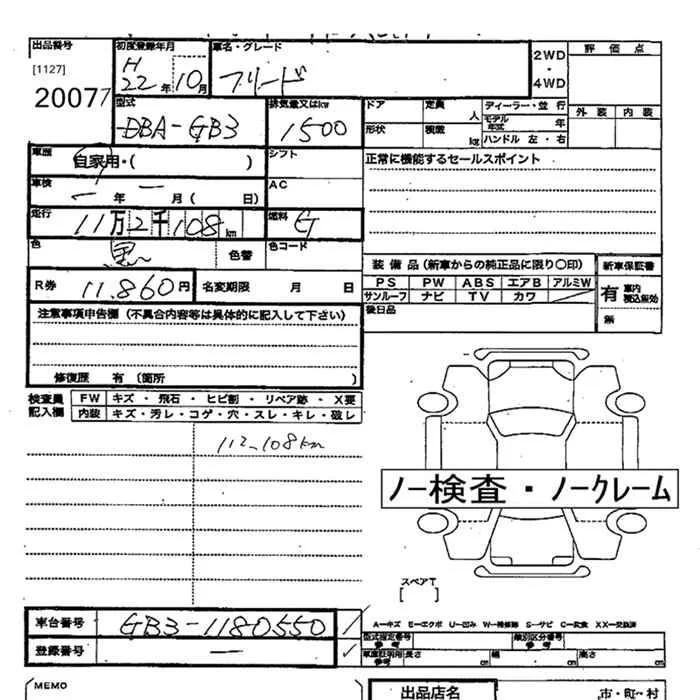 出品番号 初度登録年月 車名・グレード 評価点
[1127] H 22年 10月 フリード 2WD・4WD
20077 型式 排気量又はkw ドア 定員 人 ディーラー・並行 外装 内装
DBA-GB3 1500 形状 積載 kg モデル年式 年
ハンドル 左・右
車歴 自家用・( ) シフト 正常に機能するセールスポイント
車検 一年 一月( 日) AC
走行 11万2千108km 燃料 G
色 黒 色替 色コード
装備品(新車からの純正品に限り〇印) 新車保証書
R券 11,860円 名変期限 月 日 PS PW ABS エアB アルミW 有 車内 税込無効
サンルーフ ナビ TV カワ
注意事項申告欄(不具合内容等は具体的に記入して下さい) 後日品 無
修復歴 有 (箇所 )
検査員記入欄 FW キズ・飛石・ヒビ割・リペア跡・X要
内装 キズ・汚レ・コゲ・穴・スレ・キレ・破レ
112-108km
ノー検査・ノークレーム
スペアT
[ ]
車台番号 GB3-1180550
A-キズ E-エクボ U-凹み W-補修跡 S-サビ C-腐食 XX-交換済
型式指定番号 参考 類別区分番号 参考
登録番号 一 車庫証明用 参考 長さ cm 幅 cm 高さ cm
MEMO 出品店名 市・町・村